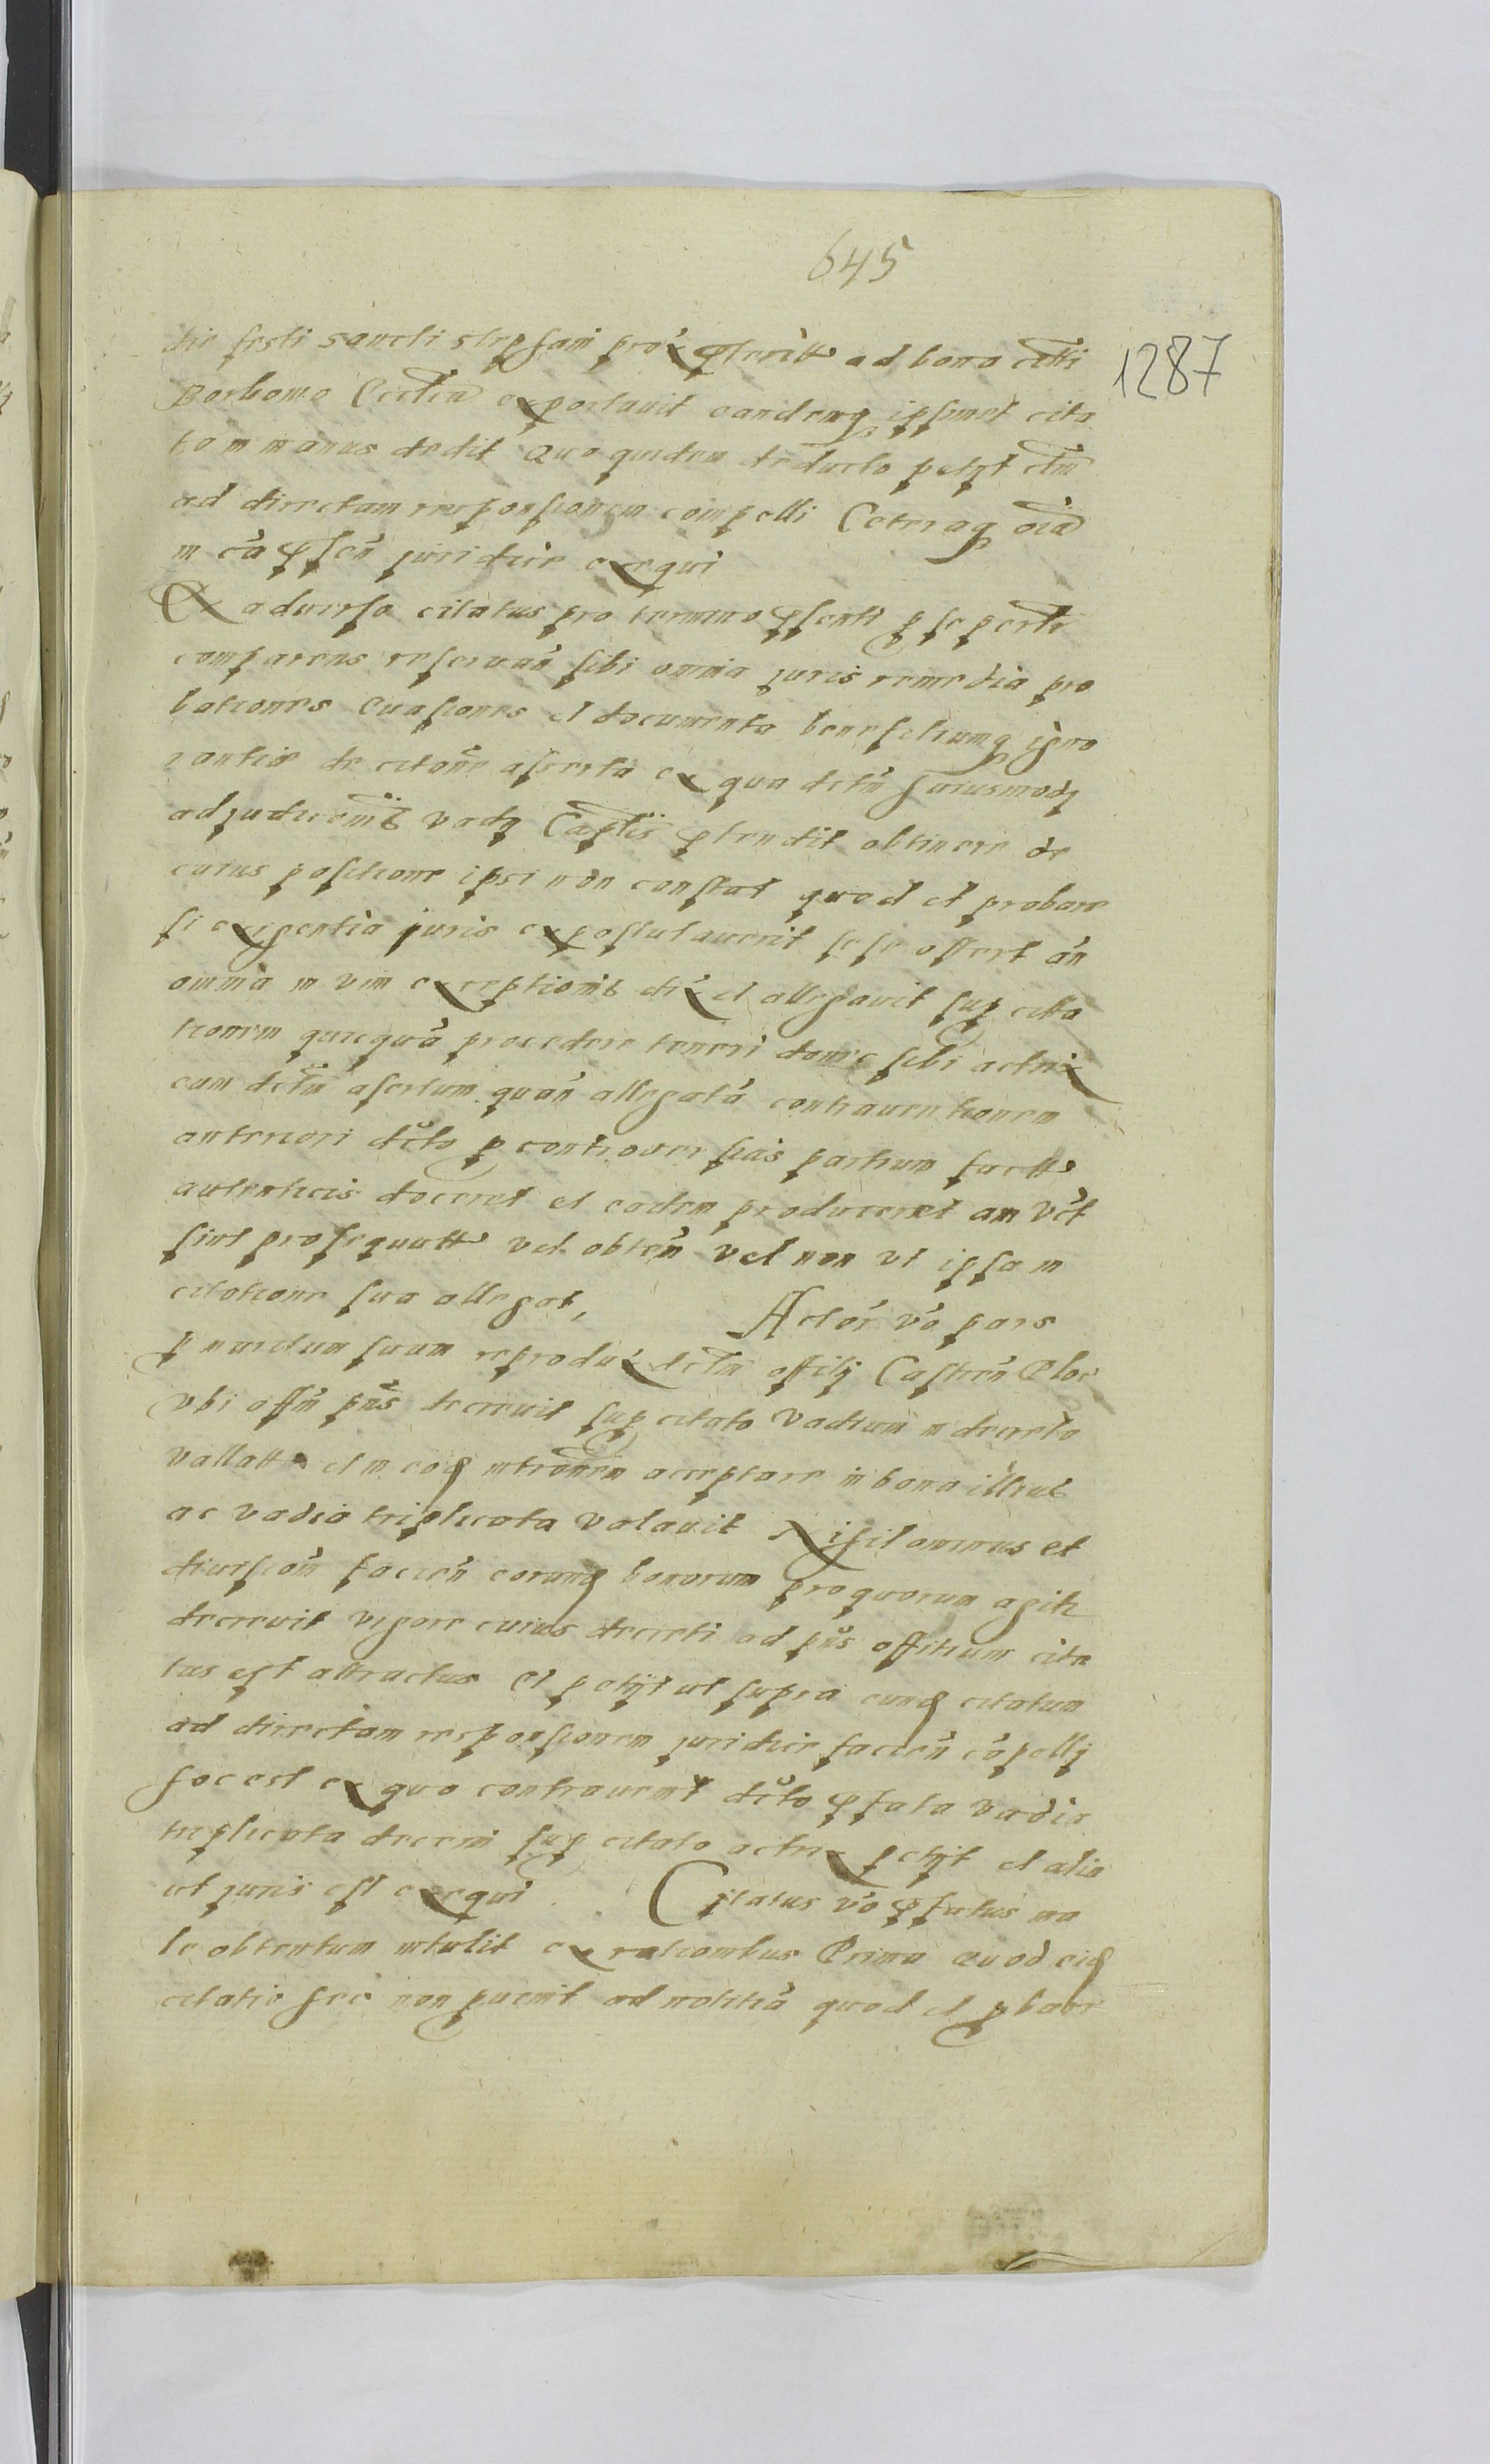 645
1287
die festi sancti stephani prox̃ p̃terit ad bona citti
Borkowo Ecclia exportauit eandemq ipsimet cita
to in manus dedit Quo quidem deducto petyt citm
ad directam responsionem compelli Ceteraq oia
in cã p̃sen juridice exequi
Ex aduerso citatus pro termino p̃senti p se perte
comparens reseruan sibi omnia juris remedia pro
bationes Euasiones et documenta beneficiumq igno
rantie de citone aserta ex qua dctm huiusmodj
adjudiconis vady Captis p̃tendit obtinere de
cuius positione ipsi non constat quod et probare
si exigentia juris expostulauerit sese offert an
omnia in vim exceptionis dix et allegauit sup citta
tionem quicquã procedere teneri donec sibi actrix
eam dctm asertum quan allegatã contrauentionem
anteriori dcto p controuersias partium fact
autenticis doceret et eadem produceret an vt
sint prosequutt vel obten vel non vt ipsa in
citatione sua allegat, Actor vo pars
p nuncium suum reprodux dctm officij Castren Ploc
vbi offm pns decreuit sup citato vadium in decreto
vallatt et in eoq intronem acceptare in bona illius
ac vadia triplicata valauit Nihilominus et
diuision facien eorunq bonorum pro quorum agitr
decreuit vigore cuius decreti ad pns offitium cita
tus est attractus et petyt ut supra eunq citatum
ad directam responsionem juridice facien copellj
hoc est ex quo contrauenit dcto p̃fata vadia
triplicata decerni sup citato actrix petyt et alia
ut juris est exequi Citatus vo p̃fatus ma
le obtentum intulit ex rationibus Prima Quod eiq
citatio hec non puenit ad notitiã quod et pbare